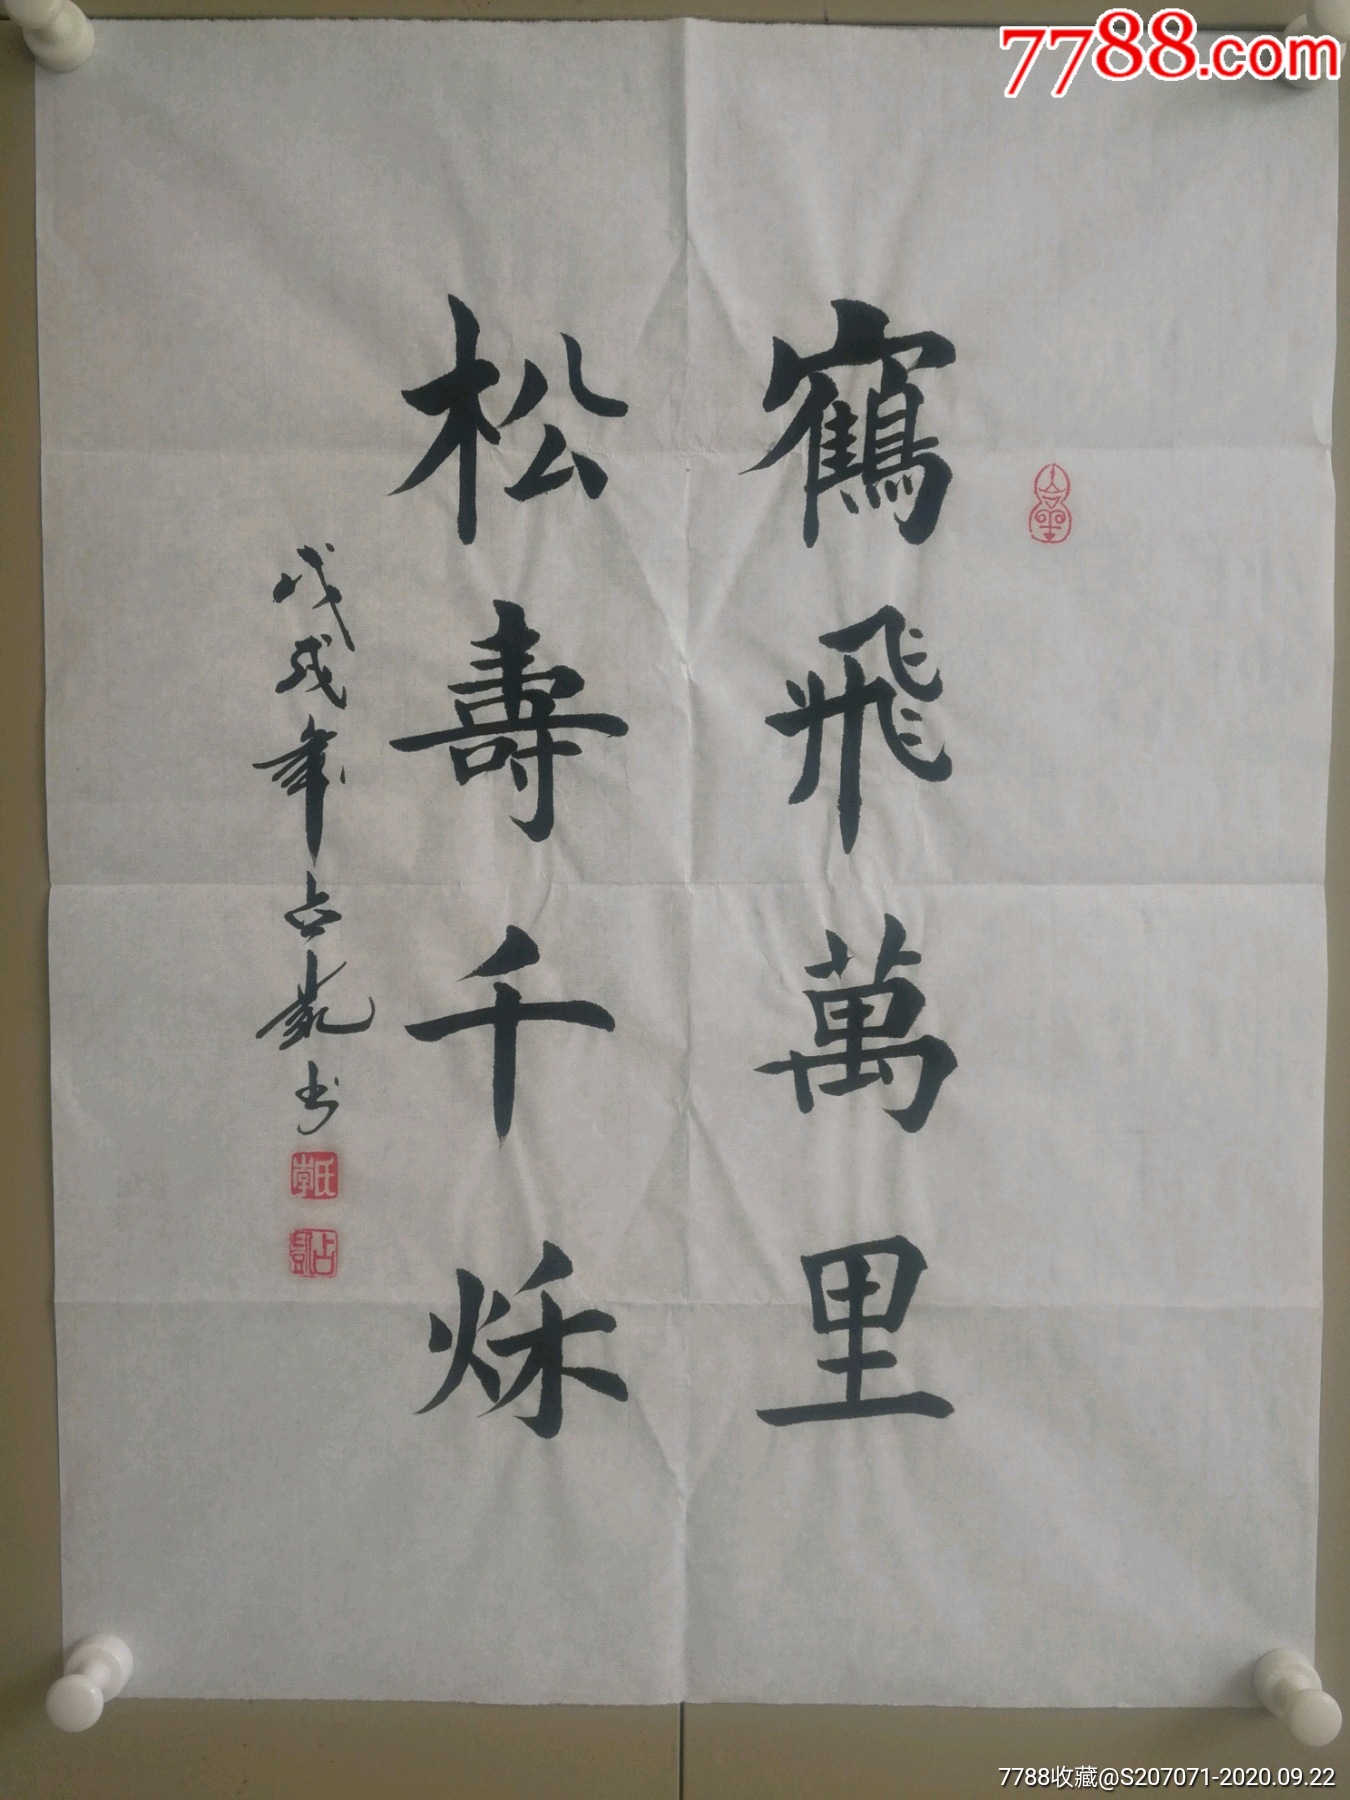 7788.com
鶴飛萬里
松壽千烁
戊戌年占凱书
李氏
占
7788收藏@S207071-2020.09.22